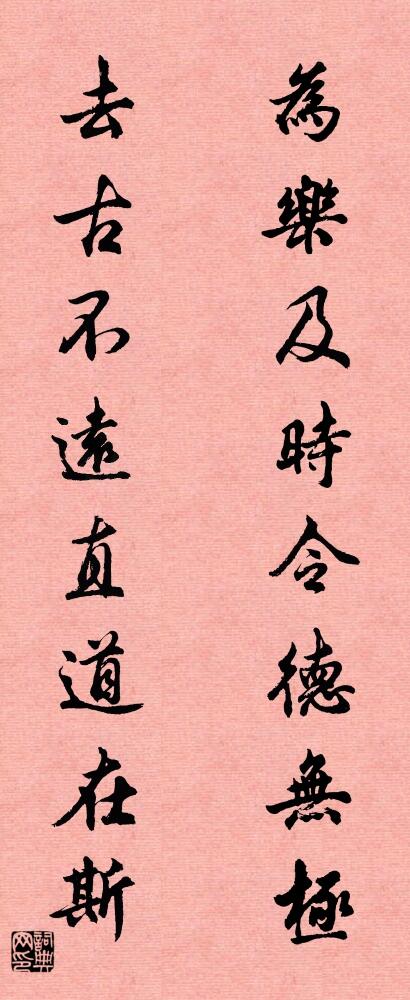 為樂及時令德無極
去古不遠直道在斯
詞典
网印